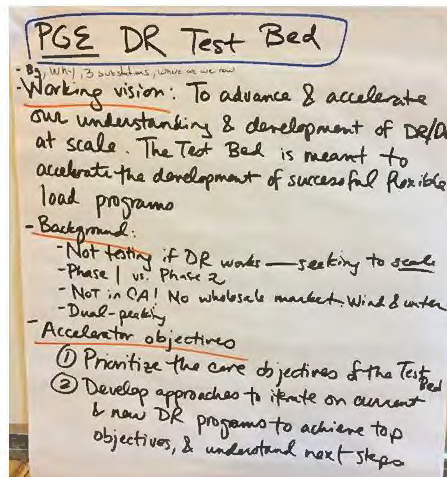 PGE DR Test Bed
- Bg, Why, 3 substations, where are we now
- Working vision: To advance & accelerate
our understanding & development of DR/D
at scale. The Test Bed is meant to
accelerate the development of successful flexible
load programs
- Background:
- Not testing if DR works — seeking to scale
- Phase 1 vs. Phase 2
- Not in CA! No wholesale market. Wind & water
- Dual-peaking
- Accelerator objectives
① Prioritize the core objectives of the Test Bed
② Develop approaches to iterate on current
& new DR programs to achieve top
objectives, & understand next steps